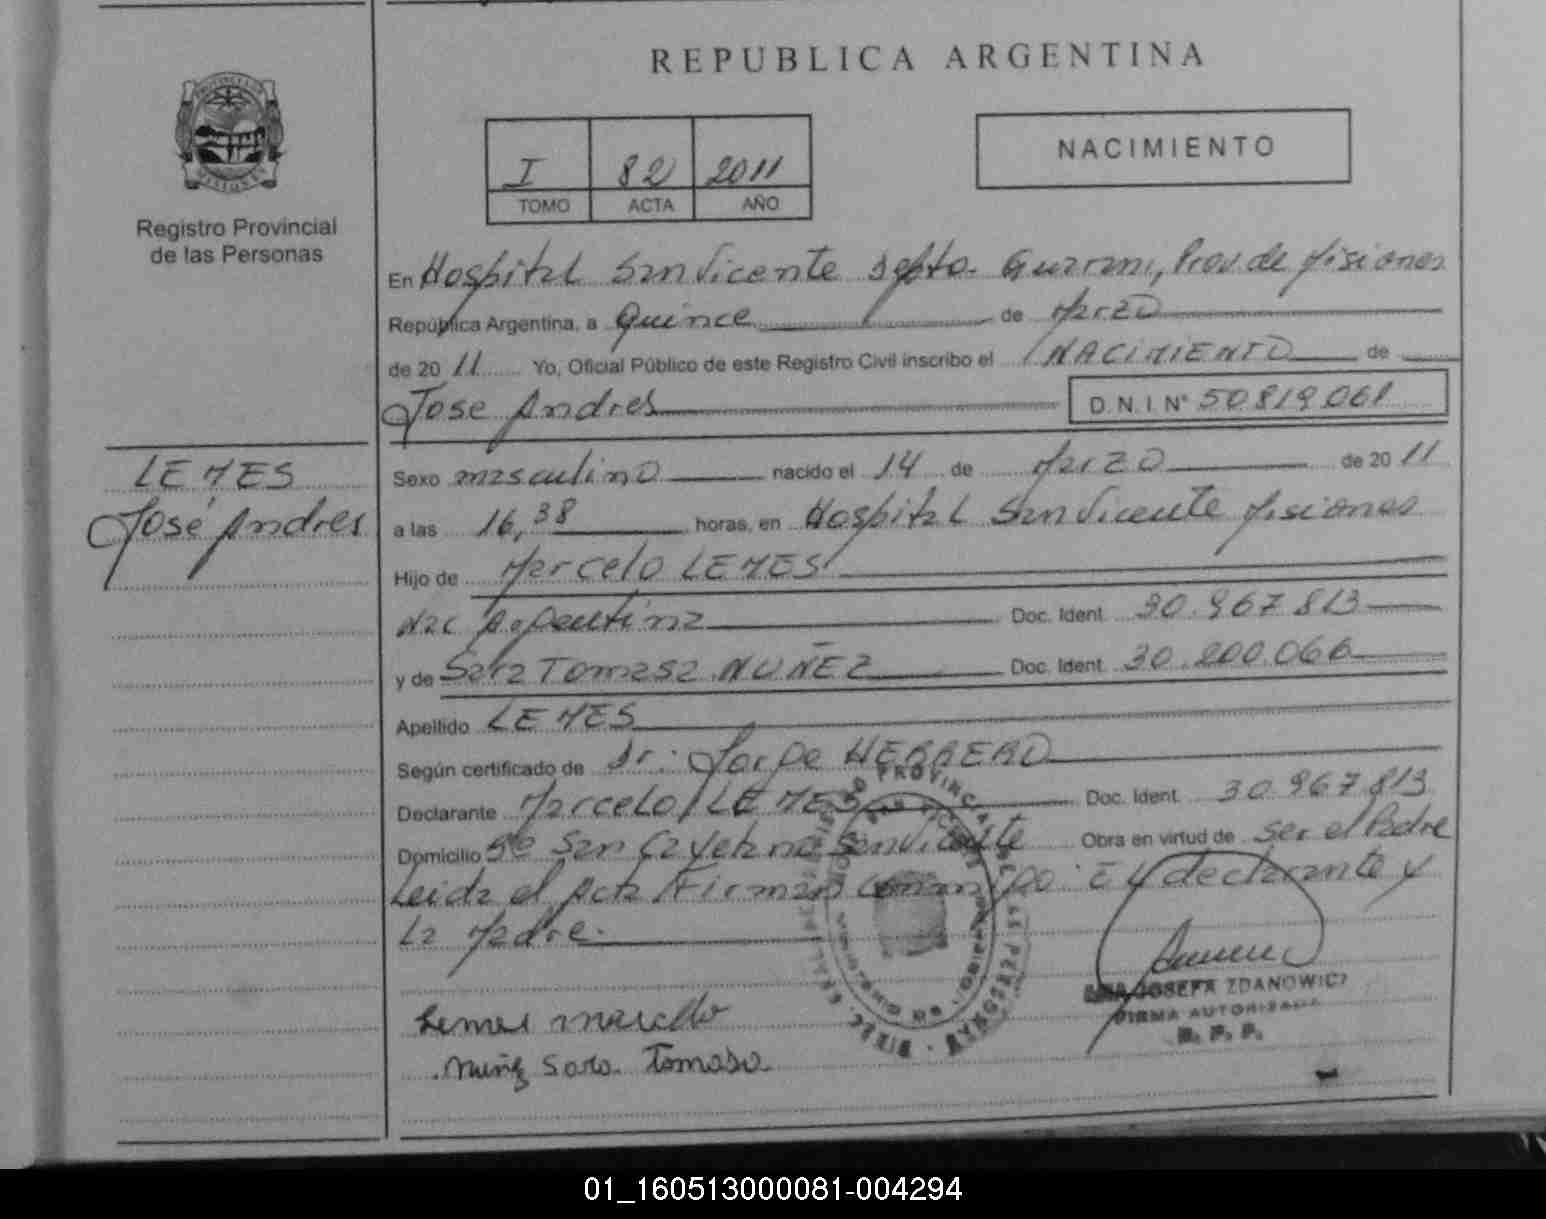 REPUBLICA ARGENTINA
I 82 2011
TOMO ACTA AÑO
NACIMIENTO
Registro Provincial
de las Personas
En Hospital San Vicente Depto. Guarani, Prov. de Misiones
República Argentina, a Quince de Marzo
de 2011 Yo, Oficial Público de este Registro Civil inscribo el NACIMIENTO de
Jose Andres D.N.I. Nº 50.819.061
LEMES
José Andres
Sexo masculino nacido el 14 de Marzo de 2011
a las 16,38 horas, en Hospital San Vicente Misiones
Hijo de Marcelo LEMES
nac Argentina Doc. Ident. 30.967.813
y de Sara Tomasa NUÑEZ Doc. Ident. 30.200.066
Apellido LEMES
Según certificado de Dr. Jorge HERRERO
Declarante Marcelo LEMES Doc. Ident. 30.967.813
Domicilio Bº San Cayetano San Vicente Obra en virtud de ser el Padre
Leida el Acta Firman conmigo: El declarante y
La Madre.
Lemes marcelo
Nuñez Sara Tomasa
JOSEFA ZDANOWICZ
FIRMA AUTORIZADA
R. P. P.
01_160513000081-004294